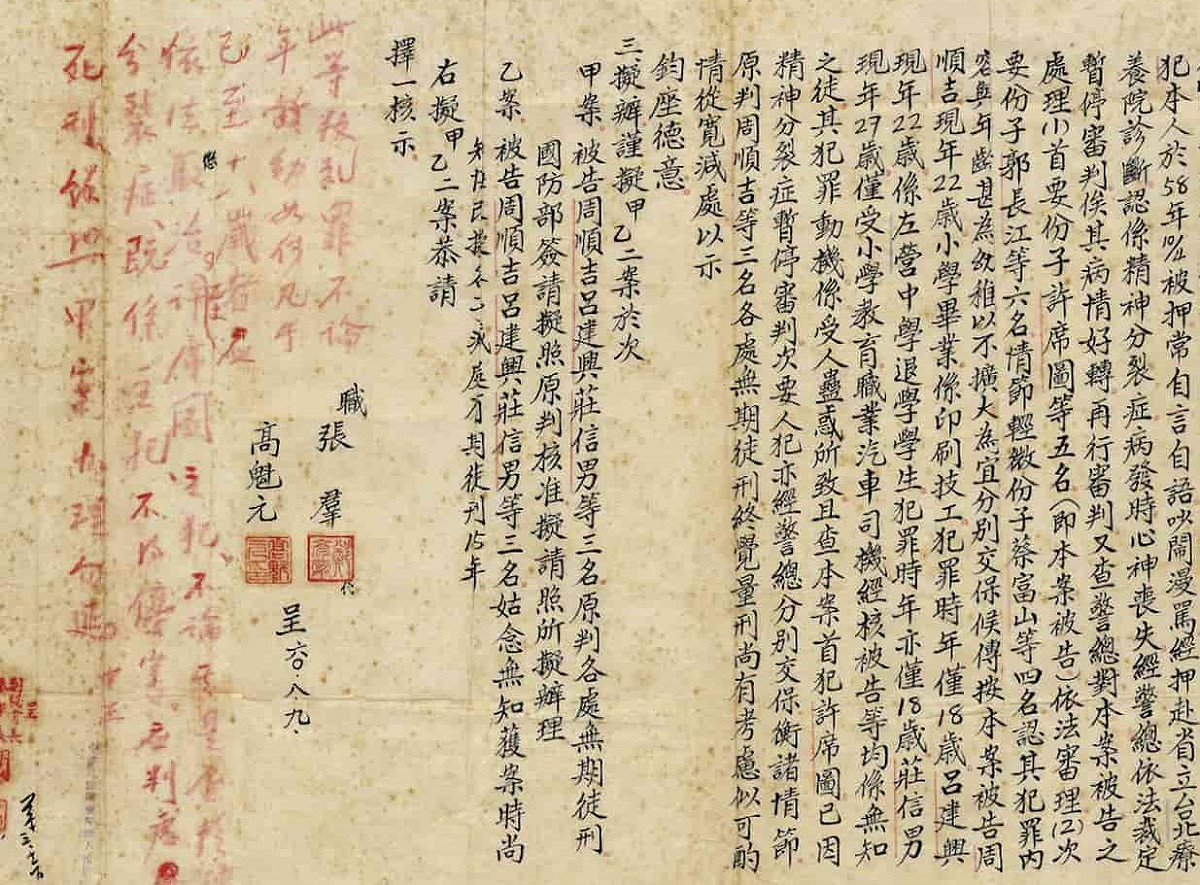 犯本人於58年10/4被押常自言自語吵鬧漫罵經押赴省立台北療
養院診斷認係精神分裂症病發時心神喪失經警總依法裁定
暫停審判俟其病情好轉再行審判又查警總對本案被告之
處理(1)首要份子許席圖等五名(即本案被告)依法審理(2)次
要份子郭長江等六名情節輕微份子蔡富山等四名認其犯罪內
容與年齡甚為幼稚以不擴大為宜分別交保候傳按本案被告周
順吉現年22歲小學畢業係印刷技工犯罪時年僅18歲呂建興
現年22歲係左營中學退學學生犯罪時年亦僅18歲莊信男
現年27歲僅受小學教育職業汽車司機經核被告等均係無知
之徒其犯罪動機係受人蠱惑所致且查本案首犯許席圖已因
精神分裂症暫停審判次要人犯亦經警總分別交保衡諸情節
原判周順吉等三名各處無期徒刑終覺量刑尚有考慮似可酌
情從寬減處以示
鈞座德意。
三、擬辦謹擬甲乙二案於次
甲案 被告周順吉呂建興莊信男等三名原判各處無期徒刑
國防部簽請擬照原判核准擬請照所擬辦理
乙案 被告周順吉呂建興莊信男等三名姑念無知獲案時尚
知坦承擬各減處有期徒刑15年
右擬甲乙二案恭請
擇一核示。
職 張羣 代
高魁元
呈 六〇、八、九、
此等叛亂罪不論
年齡幼如何凡年
已至十八歲者應
依法懲治。惟許席圖之犯、不論
分裂症、既係主犯不得優容、應判處
死刑餘照甲案辦理勿延。中正